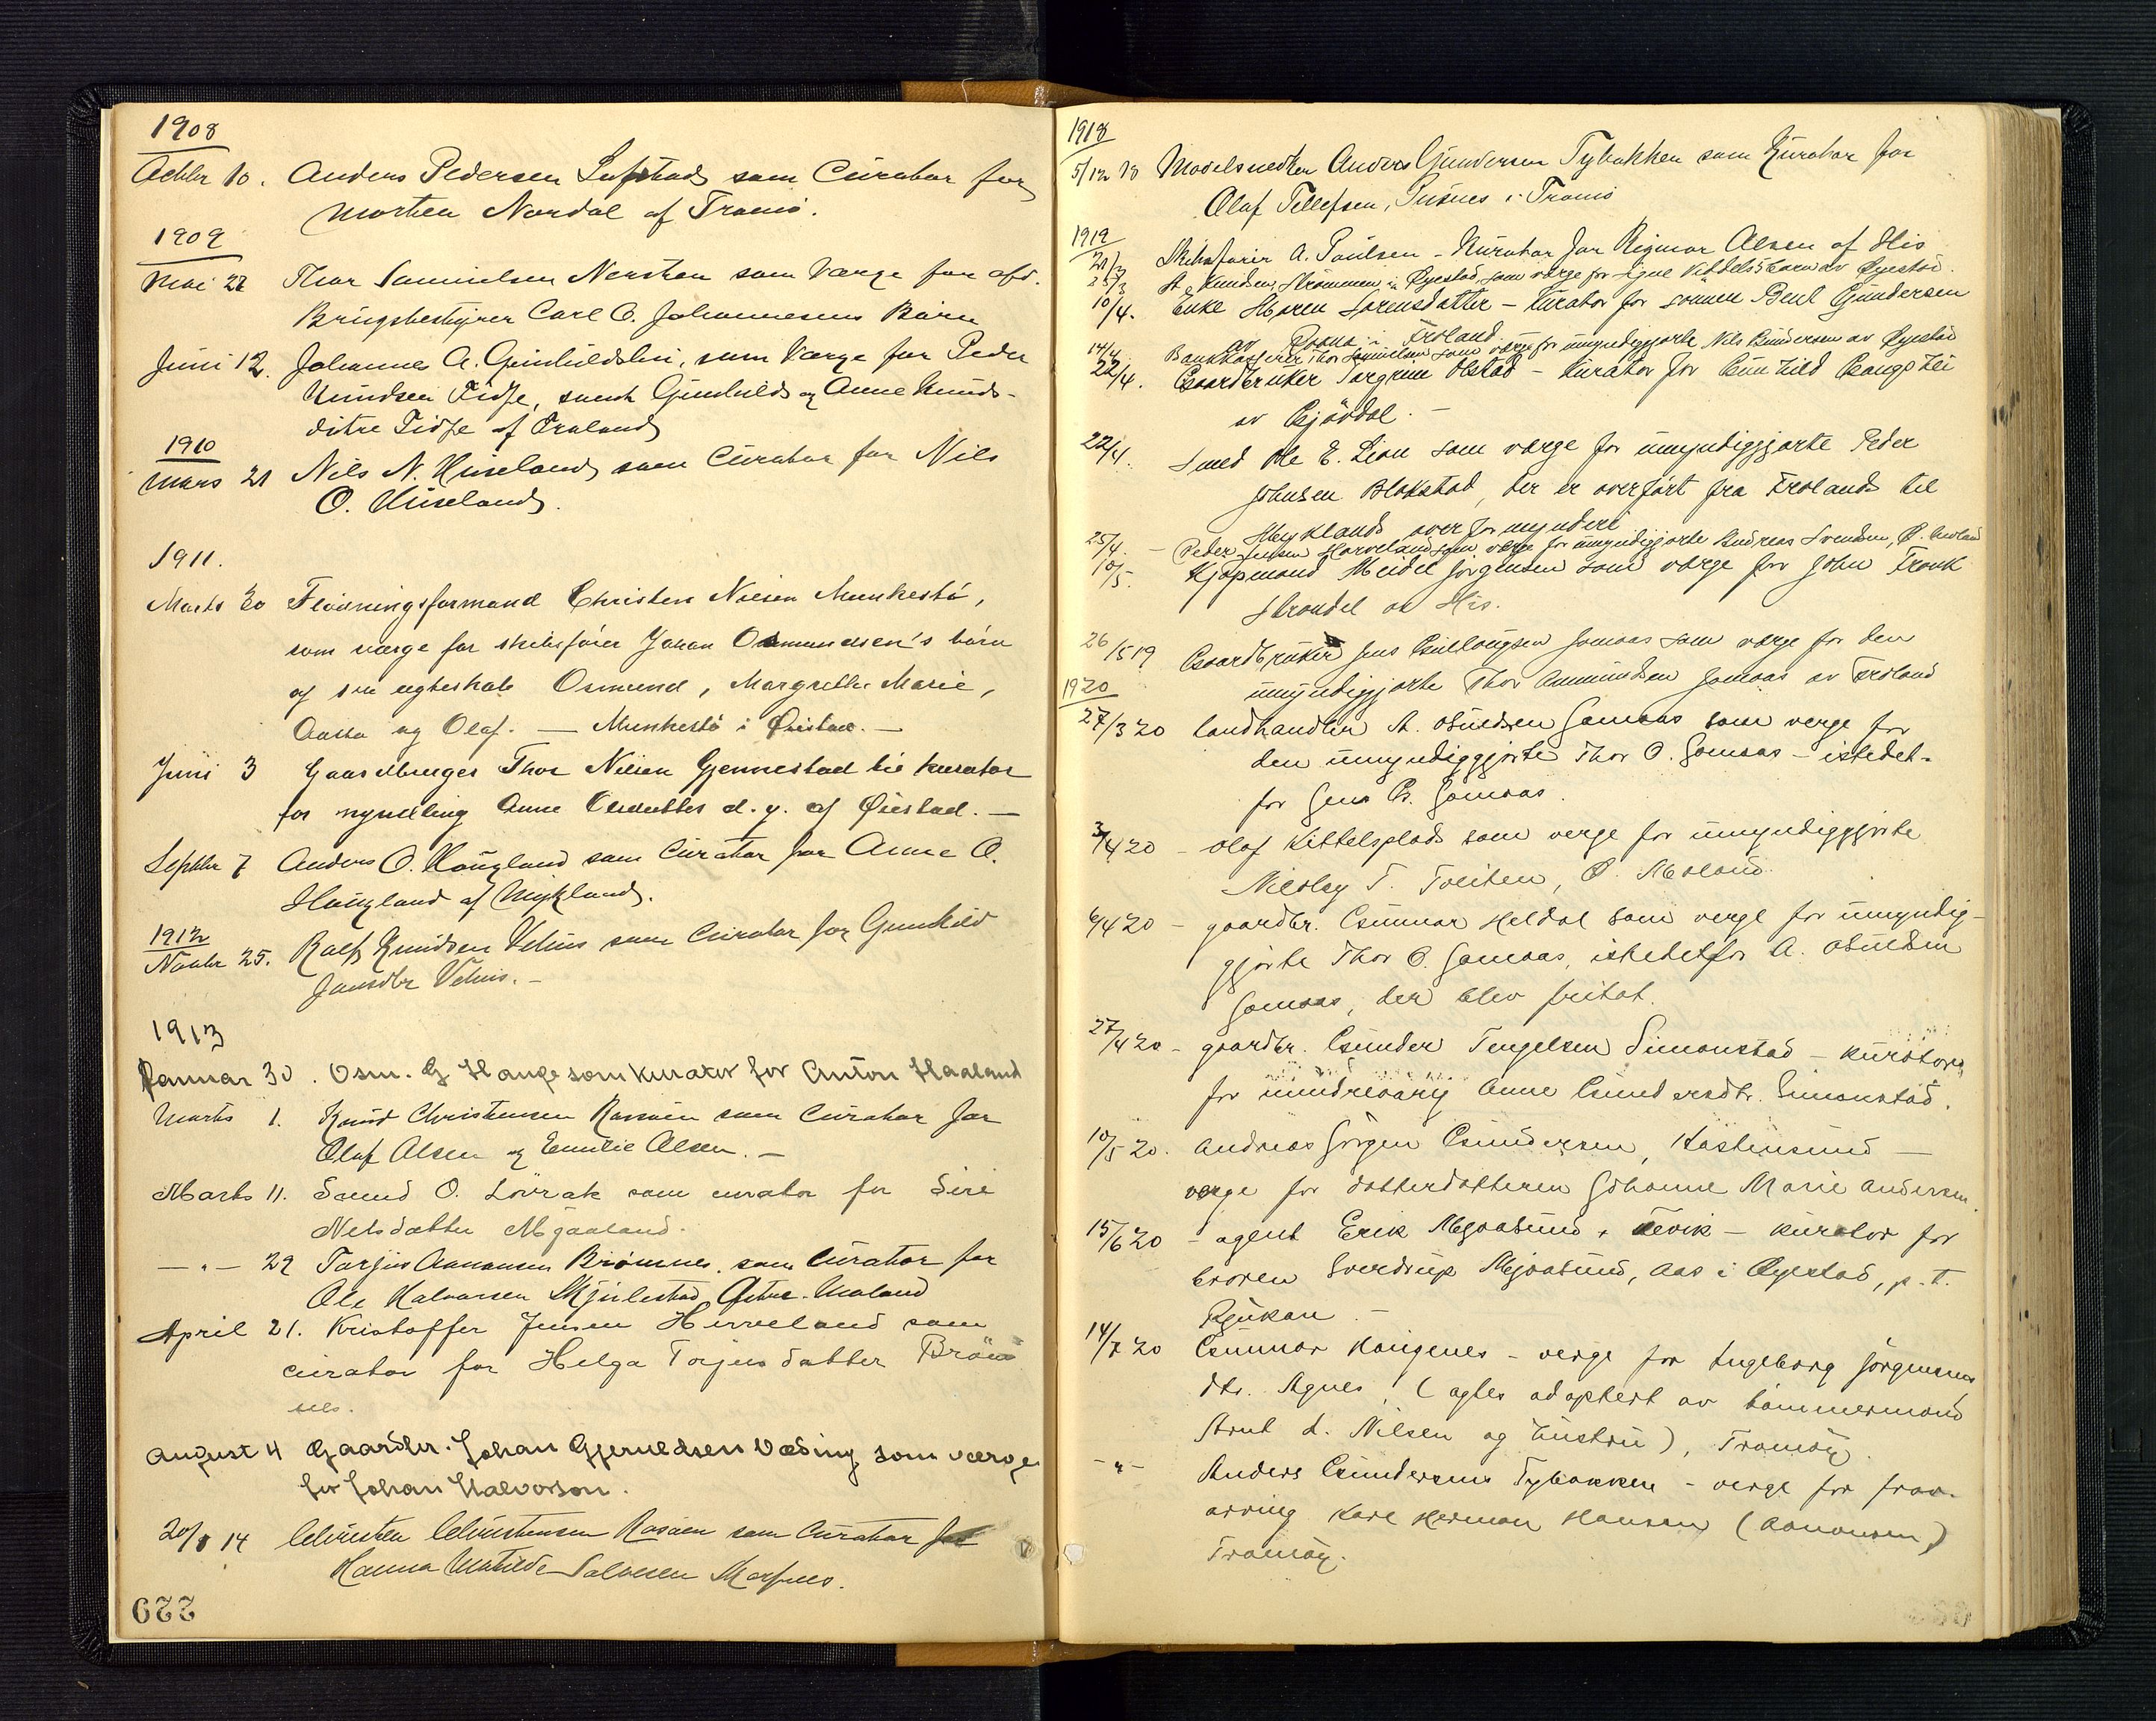 1908
Octbr 10. Anders Pedersen Løfstad som Curator for
Morten Nordal af Tromø.
1909
Mai 22 Thor Samuelsen Nersten som Værge for afd.
Brugsbestyrer Carl O. Johannesens Børn
Juni 12. Johannes A. Gunhildsli, som Værge for Peder
Knudsen samt Gunhild og Anne Knuds-
døtre af Froland
1910
Mars 21 Nils N. Huseland som Curator for Nils
O. Huseland.
1911.
Marts 30 Flødningsformand Christen Nilsen Munkestø,
som værge for skibsfører Johan Osmundsen's børn
af sin egteskab Osmund, Margrethe Marie,
Aasta og Olaf. — Munkestø i Øiestad. —
Juni 3 Gaardbruger Thor Nilsen Gjennestad til kurator
for myndling Anne d. y. af Øiestad. —
Septbr 7 Anders O. Haugland som Curator for Anne O.
Haugland af Mykland.
1912
Novbr 25. Ralf Knudsen Vehus som Curator for Gunhild
Jensdtr Vehus. —
1913
Januar 30. Osm. G Hauge som Kurator for Anton Haaland
Marts 1. Knud Christensen Rasaen som Curator for
Olaf Olsen og Emilie Olsen. —
Marts 11. Saamund O. Løvrak som curator for Siri
Nelsdatter Mjaaland.
— " — 29 Torjus Aanonsen Brømnes som Curator for
Ole Halvorsen Skjulestad Østre Moland
April 21. Kristoffer Jensen Herveland som
curator for Helga Torjusdatter Brøm
nes.
August 4 Gaardbr. Johan Gjeruldsen Væding som værge
for Johan Halvorson.
20/8 14 Christen Christensen Rasaen som Curator for
Hanna Matilde Salvesen Marsnes.
622
1918
5/12 18 Modelsnedker Anders Gundersen Tybakken som Kurator for
Olaf Tellefsen, Pusnes i Tromø
1919
21/3 Skibsfører A. Paulsen - Kurator for Ragmor Olsen af His
25/3 A. Knudsen, Strømmen i Øyestad, som værge for Signe Kittelsbarn av Øyestad.
10/4. Enke Maren Sørensdatter - Kurator for sønnen Bent Gundersen
av i Froland.
14/4 Bankkasserer Thor Samuelsen som værge for umyndiggjorte Nils Gundersen av Øyestad
22/4. Gaardbruker Torgrim Olstad - kurator for Gunhild Gangsei
av Gjøvdal. —
22/4. Smed Ole E. Lien som værge for umyndiggjorte Peder
Johnsen Blakstad, der er overført fra Frolands til
Myklands overformynderi
25/4. - Peder Jensen Herveland som værge for umyndiggjorte Andreas Svendsen, Ø. Moland
10/5. Kjøpmand Meidel Jørgensen som værge for John Frank
Strandel av His.
26/5 19 Gaardbruker Jens Gullaugsen Jomaas som værge for den
umyndiggjorte Thor Aamundsen Jomaas av Froland
1920
27/3 20 Landhandler A. Osuldsen Jomaas som verge for
den umyndiggjorte Thor O. Jomaas - istedet-
for Jens G. Jomaas.
3/4 20 - Olaf Kittelsplads som verge for umyndiggjorte
Nicolay T. Tveiten, Ø. Moland.
6/4 20 - gaardbr. Gunnar Heldal som verge for umyndig-
gjorte Thor O. Jomaas, istedetfor A. Osuldsen
Jomaas, der blev fritat.
27/4 20 - gaardbr. Gunder Tengelsen Simonstad - kurator
for mindreaarig Anne Gundersdtr. Simonstad.
10/5 20. Andreas Jørgen Gundersen, Hastensund —
verge for datterdatteren Johanne Marie Andersen.
15/6 20 - agent Erik Mjaasund, Revik - kurator for
broren Sverdrup Mjaasund, Aas i Øyestad, p.t.
Rjukan —
14/7 20 Gunnar Haugenes - verge for Ingeborg Jørgensens
dtr. Agnes, (agtes adoptert av tømmermand
Arnt L. Nilsen og hustru), Tromøy.
- " - Anders Gundersens Tybakken - verge for frav.
arving Karl Herman Hansen (Aanonsen)
Tromøy.